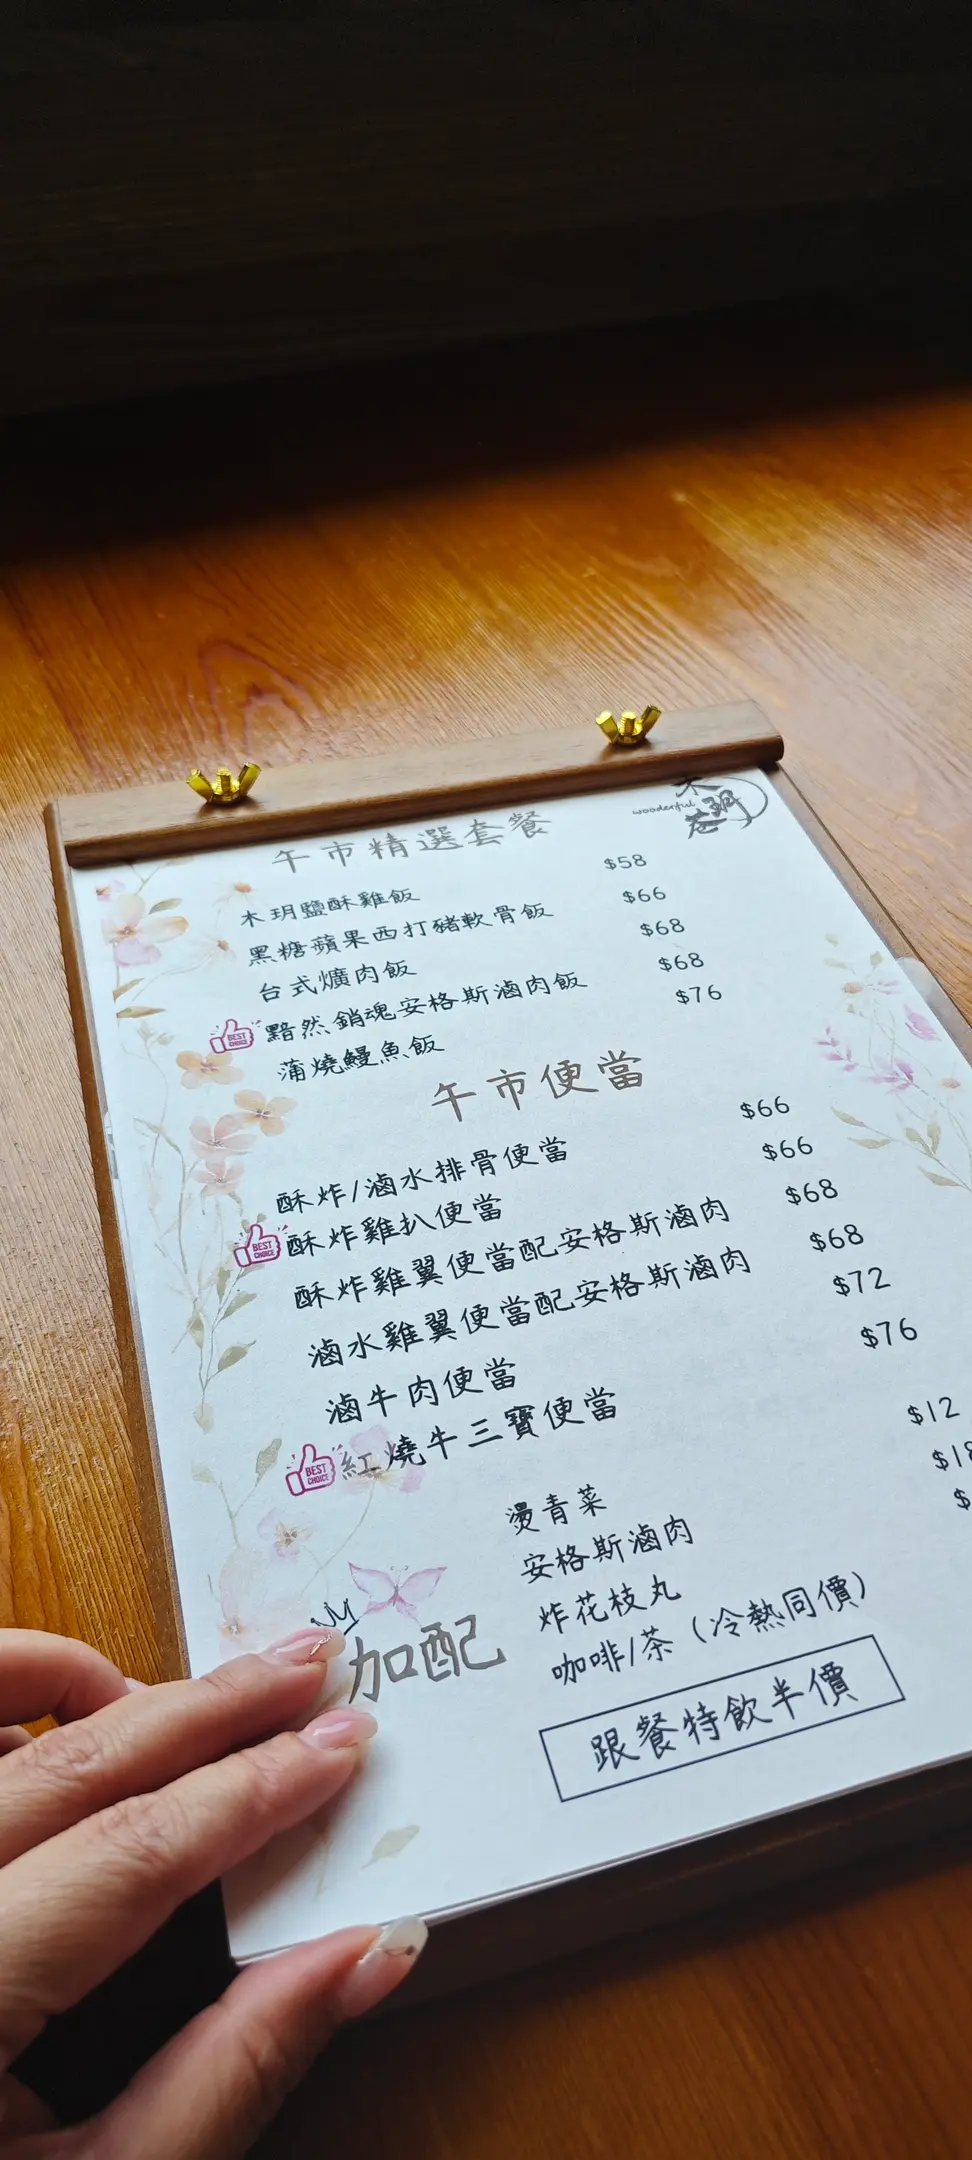 午市精選套餐
woodenful
木玥鹽酥雞飯 $58
黑糖蘋果西打豬軟骨飯 $66
台式爌肉飯 $68
BEST CHOICE 黯然銷魂安格斯滷肉飯 $68
蒲燒鰻魚飯 $76
午市便當
酥炸/滷水排骨便當 $66
BEST CHOICE 酥炸雞扒便當 $66
酥炸雞翼便當配安格斯滷肉 $68
滷水雞翼便當配安格斯滷肉 $68
滷牛肉便當 $72
BEST CHOICE 紅燒牛三寶便當 $76
加配
燙青菜 $12
安格斯滷肉
炸花枝丸
咖啡/茶（冷熱同價）
跟餐特飲半價